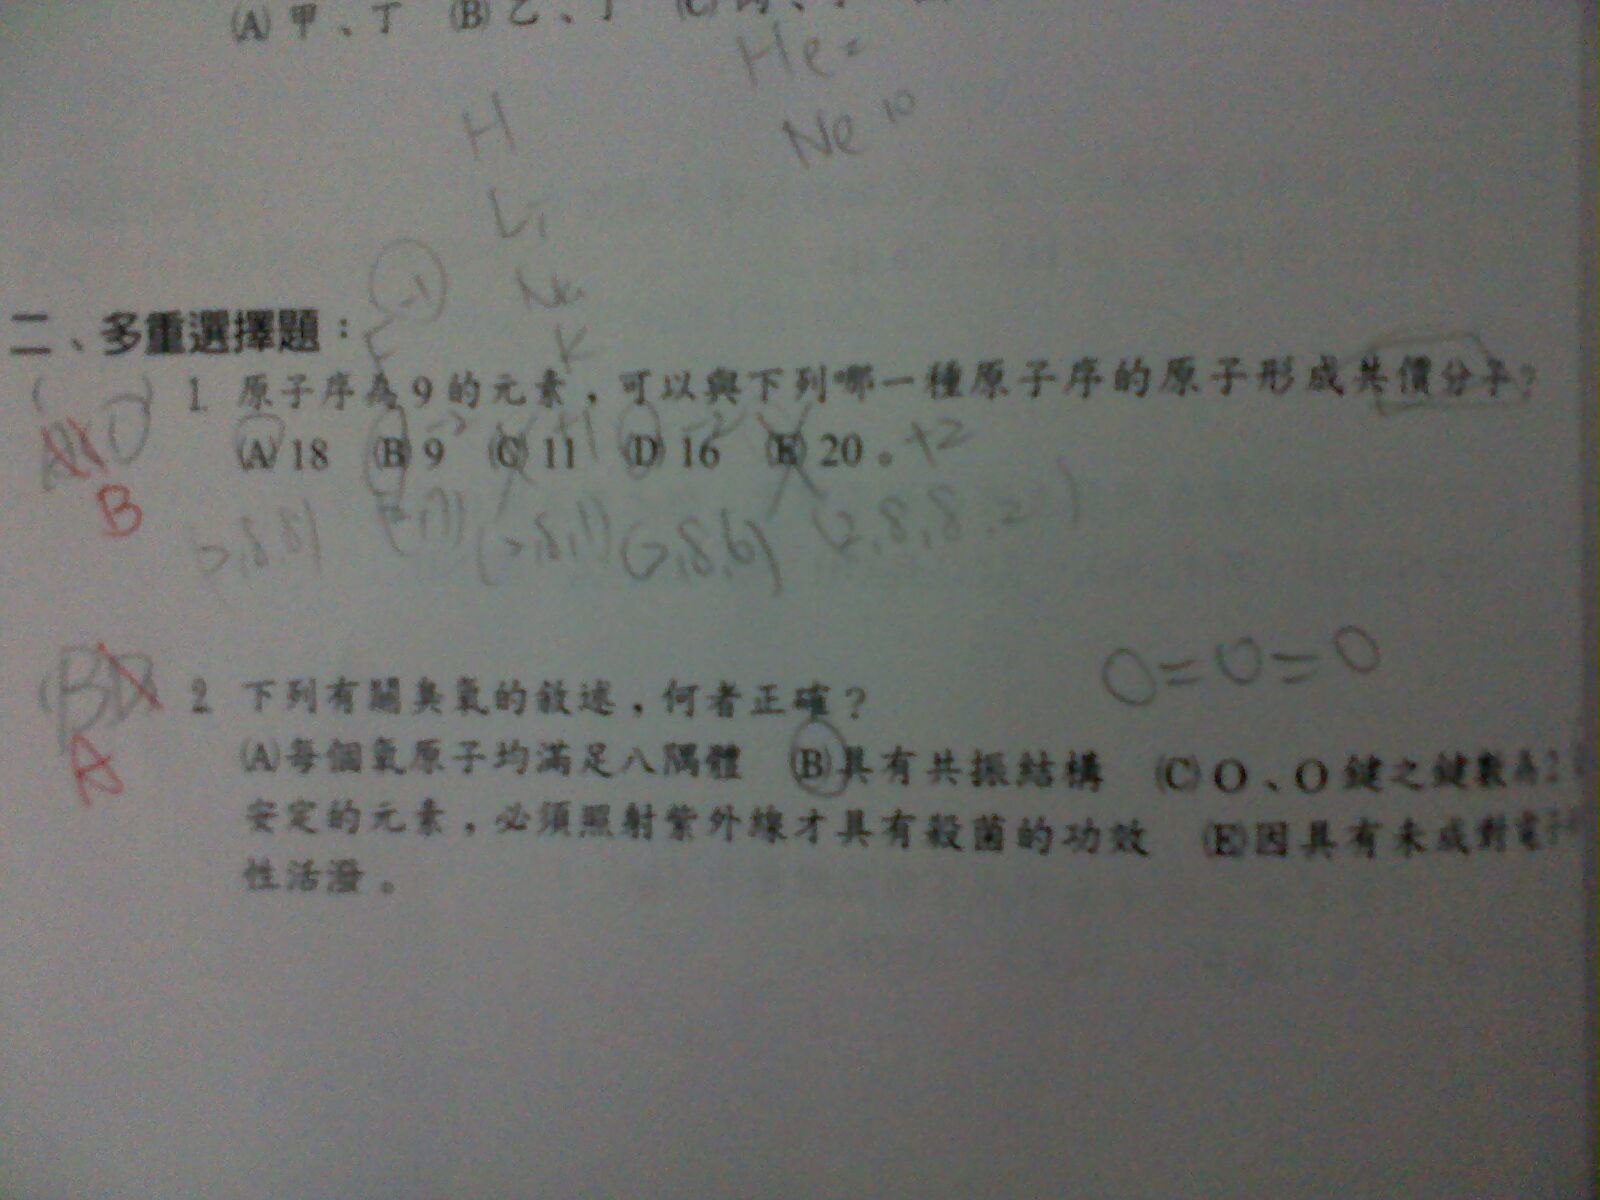 (A) 甲、丁 (B) 乙、丁 (C)
He =
H
Ne 10
Li
-1
Na
二、多重選擇題：
F K
1. 原子序為 9 的元素，可以與下列哪一種原子序的原子形成共價分子？
(A) 18 (B) 9 (C) 11 +1 (D) 16 -2 (E) 20 。 +2
D
B
2,8,8) (2,7) (2,8,1) (2,8,6) (2,8,8,2)
O=O=O
BD 2. 下列有關臭氧的敘述，何者正確？
A
(A)每個氧原子均滿足八隅體 (B)具有共振結構 (C) O、O 鍵之鍵數為 2
安定的元素，必須照射紫外線才具有殺菌的功效 (E)因具有未成對電子
性活潑。